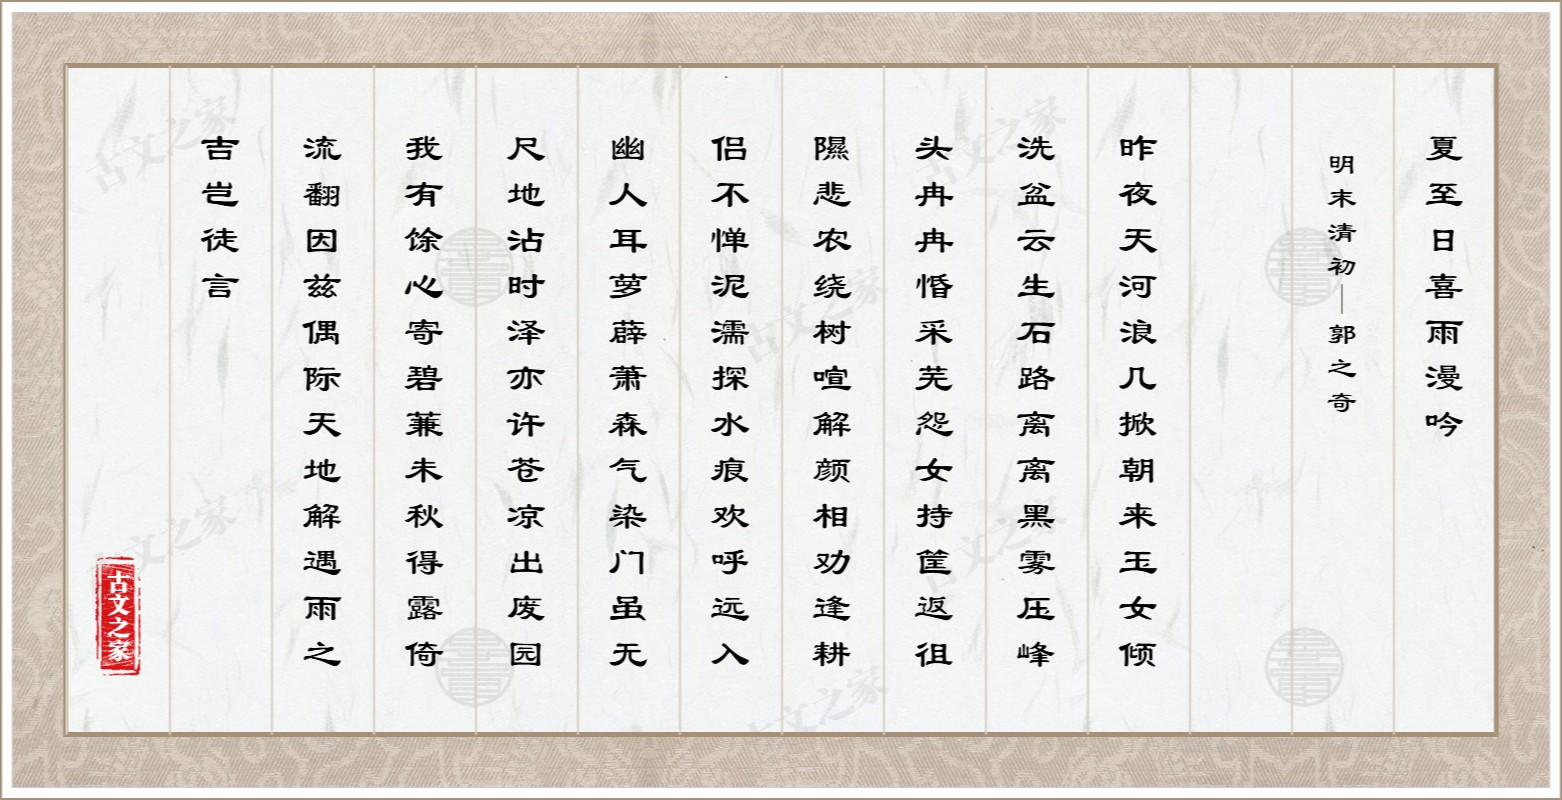 夏至日喜雨漫吟
明末清初｜郭之奇
昨夜天河浪几掀朝来玉女倾
洗盆云生石路离离黑雾压峰
头冉冉惛采芜怨女持筐返徂
隰悲农绕树喧解颜相劝逢耕
侣不惮泥濡探水痕欢呼远入
幽人耳萝薜萧森气染门虽无
尺地沾时泽亦许苍凉出废园
我有馀心寄碧蒹未秋得露倚
流翻因兹偶际天地解遇雨之
吉岂徒言
古文之家